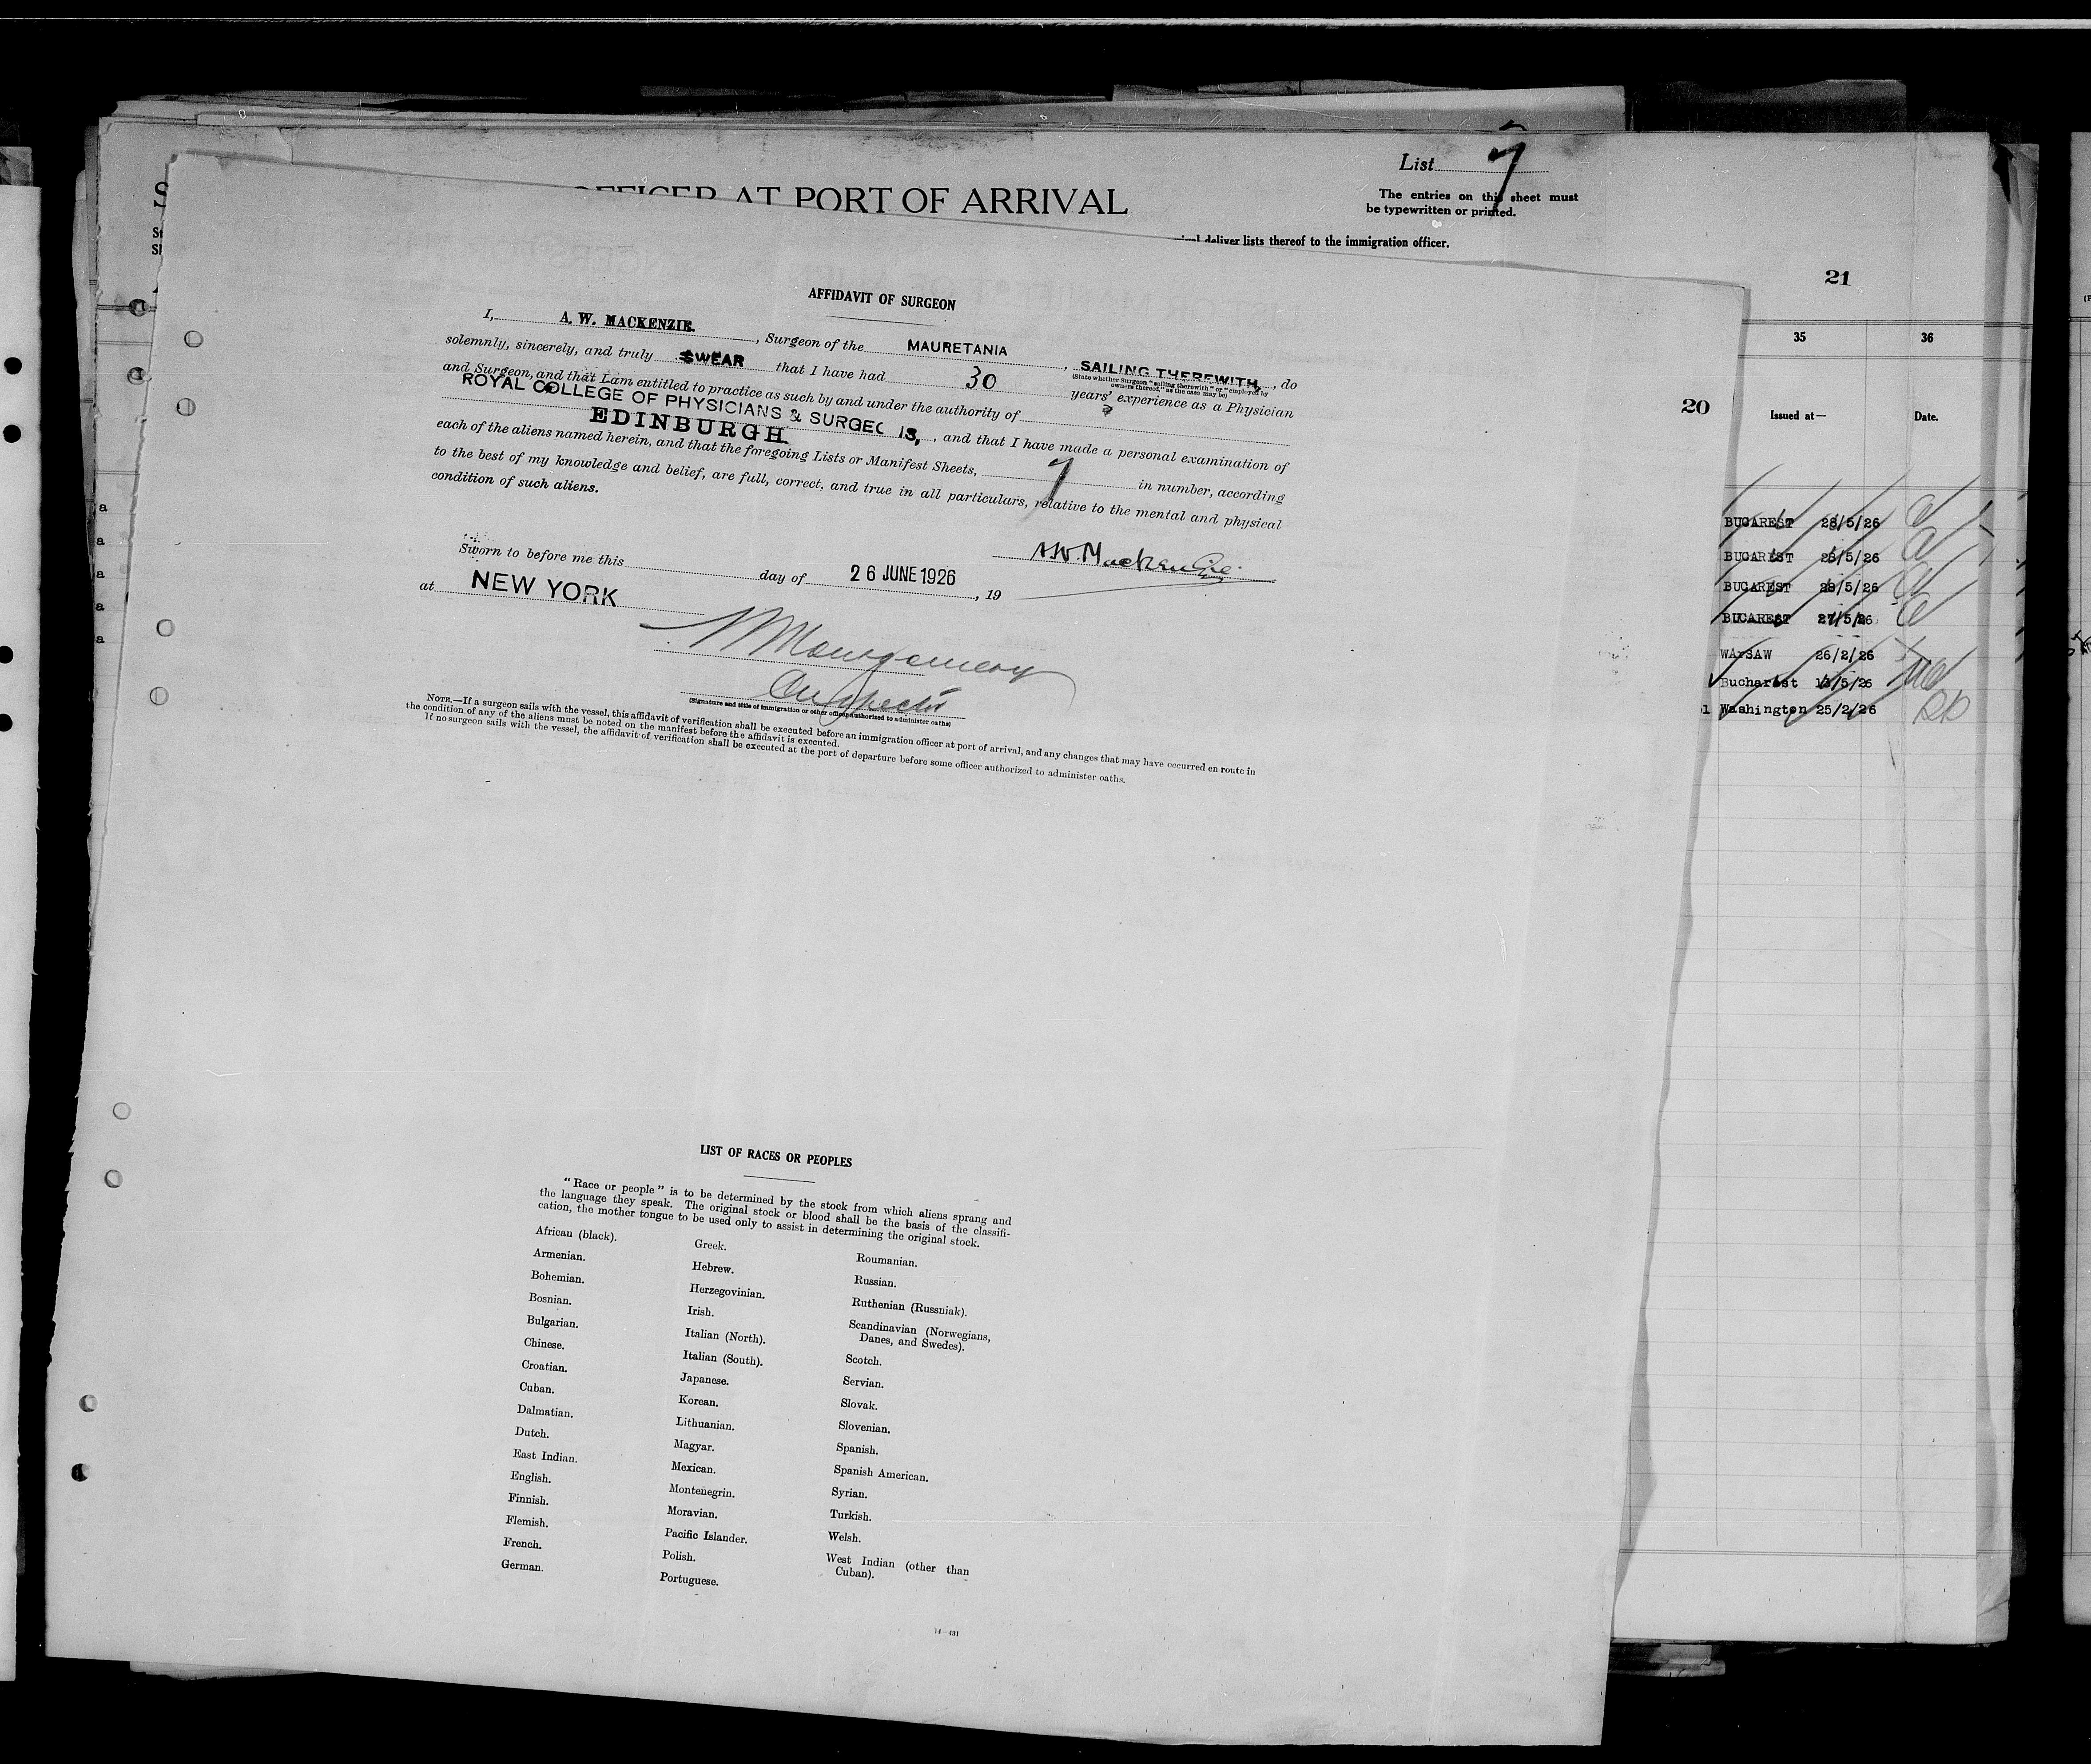 List 7
OFFICER AT PORT OF ARRIVAL
The entries on this sheet must
be typewritten or printed.
deliver lists thereof to the immigration officer.
21
20
35 36
Issued at— Date.
BUCAREST 28/5/26
BUCAREST 28/5/26
BUCAREST 28/5/26
BUCAREST 27/5/26
WARSAW 26/2/26
Bucharest 18/5/26
Washington 25/2/26
AFFIDAVIT OF SURGEON
I, A. W. MACKENZIE. , Surgeon of the MAURETANIA , SAILING THEREWITH, , do
(State whether Surgeon "sailing therewith" or "employed by
owners thereof," as the case may be)
solemnly, sincerely, and truly SWEAR that I have had 30 years' experience as a Physician
and Surgeon, and that I am entitled to practice as such by and under the authority of
ROYAL COLLEGE OF PHYSICIANS & SURGEO
EDINBURGH. , and that I have made a personal examination of
each of the aliens named herein, and that the foregoing Lists or Manifest Sheets, 7 in number, according
to the best of my knowledge and belief, are full, correct, and true in all particulars, relative to the mental and physical
condition of such aliens.
A.W. Mackenzie
Sworn to before me this day of 26 JUNE 1926 , 19
at NEW YORK
Montgomery
Inspector
(Signature and title of immigration or other officer authorized to administer oaths)
NOTE.—If a surgeon sails with the vessel, this affidavit of verification shall be executed before an immigration officer at port of arrival, and any changes that may have occurred en route in
the condition of any of the aliens must be noted on the manifest before the affidavit is executed.
If no surgeon sails with the vessel, the affidavit of verification shall be executed at the port of departure before some officer authorized to administer oaths.
LIST OF RACES OR PEOPLES
"Race or people" is to be determined by the stock from which aliens sprang and
the language they speak. The original stock or blood shall be the basis of the classifi-
cation, the mother tongue to be used only to assist in determining the original stock.
African (black).
Armenian.
Bohemian.
Bosnian.
Bulgarian.
Chinese.
Croatian.
Cuban.
Dalmatian.
Dutch.
East Indian.
English.
Finnish.
Flemish.
French.
German.
Greek.
Hebrew.
Herzegovinian.
Irish.
Italian (North).
Italian (South).
Japanese.
Korean.
Lithuanian.
Magyar.
Mexican.
Montenegrin.
Moravian.
Pacific Islander.
Polish.
Portuguese.
Roumanian.
Russian.
Ruthenian (Russniak).
Scandinavian (Norwegians,
Danes, and Swedes).
Scotch.
Servian.
Slovak.
Slovenian.
Spanish.
Spanish American.
Syrian.
Turkish.
Welsh.
West Indian (other than
Cuban).
14—431